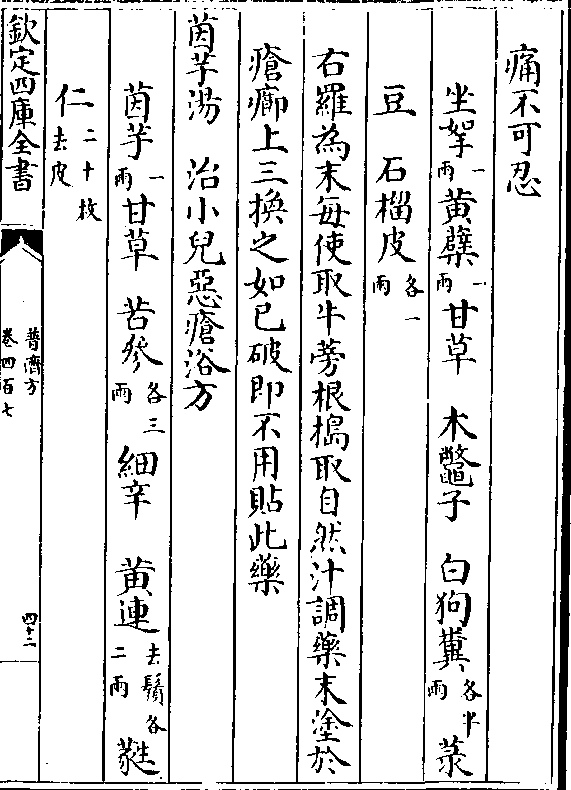 痛不可忍
坐拏一兩黃蘗一兩甘草　木鼈子　白狗糞各半兩菉
豆　石榴皮各一兩
右羅為末每使取牛蒡根搗取自然汁調藥末塗於
瘡癤上三換之如已破即不用貼此藥
茵芋湯　治小兒惡瘡浴方
茵芋一兩甘草　苦參各三兩細辛　黃連去鬚各二兩蕤
仁二十枚去皮
欽定四庫全書
普濟方
卷四百七
四十二